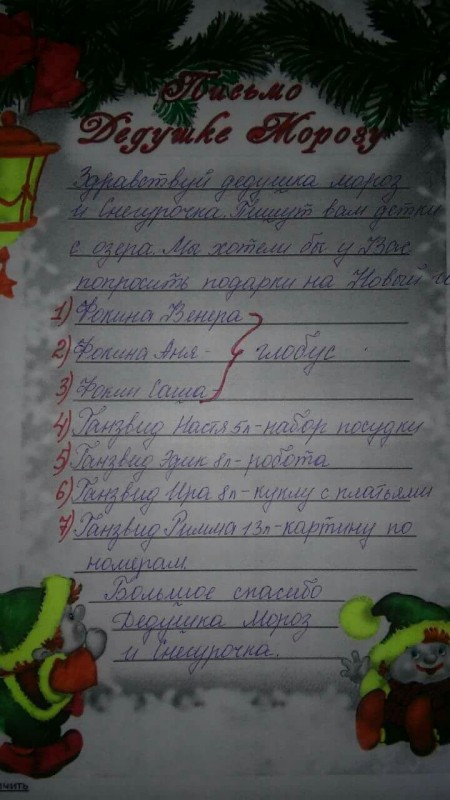 Письмо
Дедушке Морозу
Здравствуй дедушка мороз
и Снегурочка. Пишут вам детки
с озера. Мы хотели бы у Вас
попросить подарки на Новый
1) Фокина Венера
2) Фокина Аня - глобус
3) Фокин Саша-
4) Ганзвид Настя 5л-набор посудки
5) Ганзвид Эрик 8л-робота
6) Ганзвид Ира 8л-куклу с платьями
7) Ганзвид Римма 13л-картину по
номерам.
Большое спасибо
Дедушка Мороз
и Снегурочка.